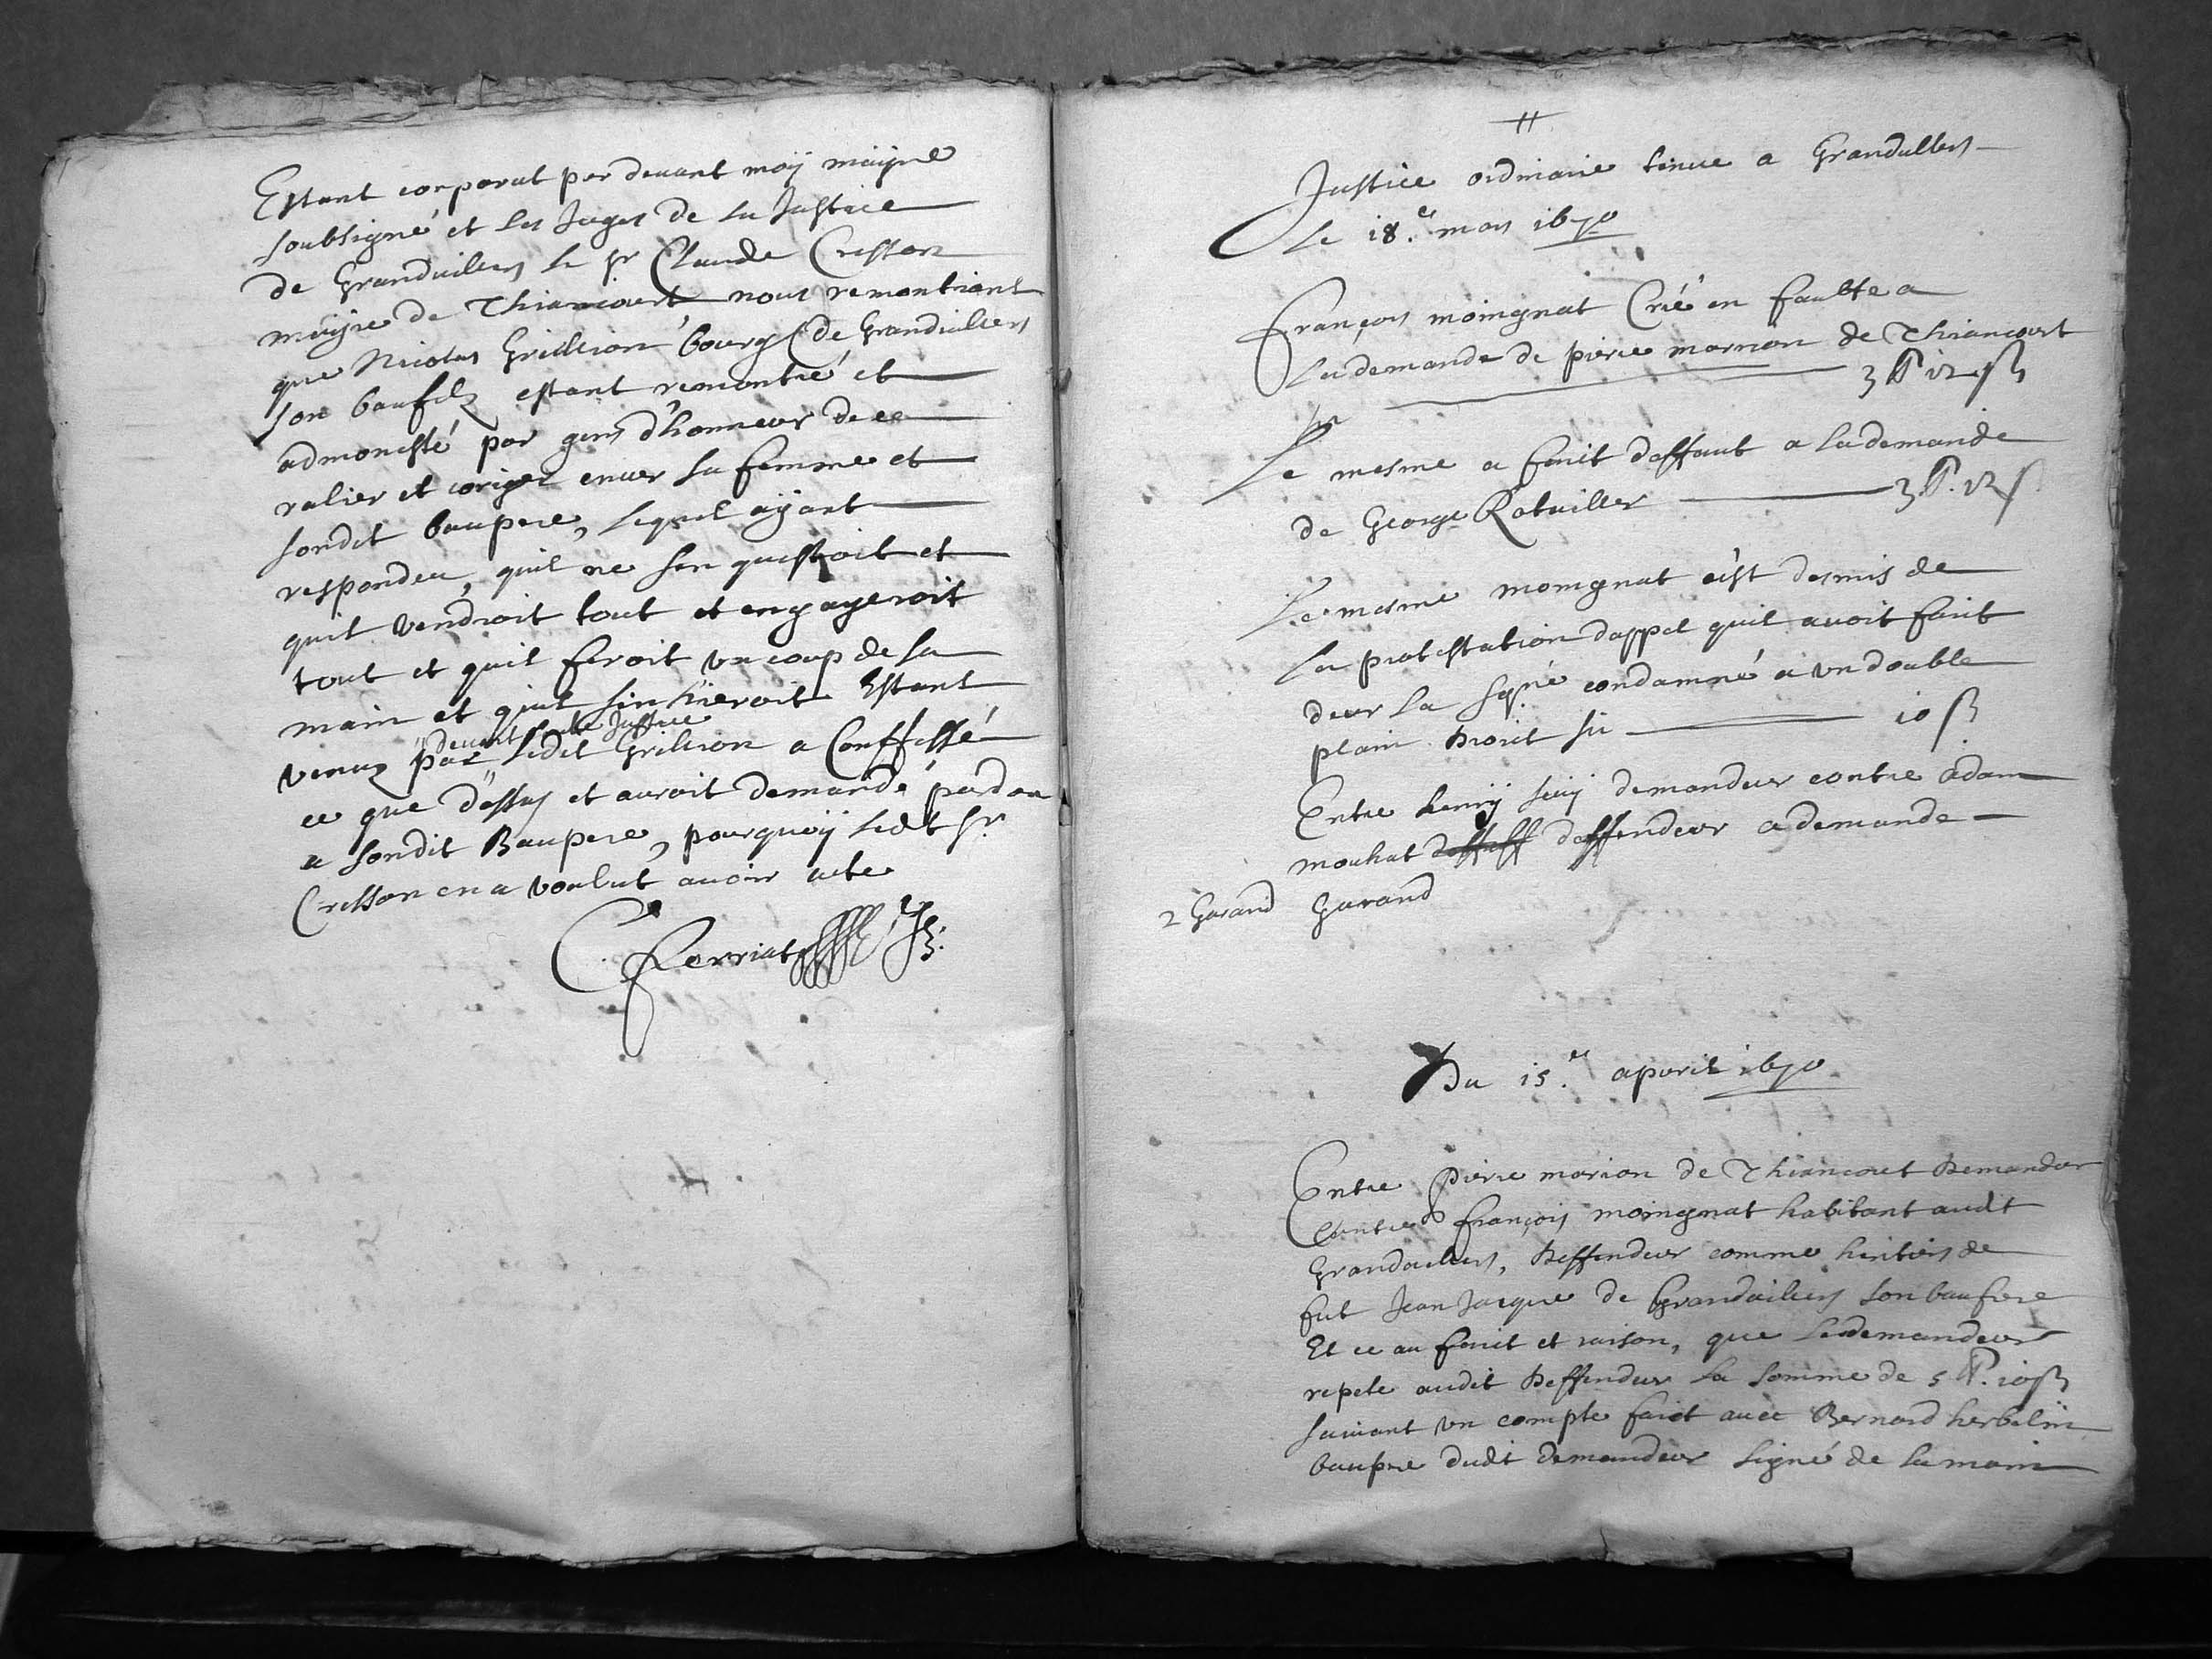 Estant comparut par devant moÿ maÿre
soubsigné et les Juges de la Justice
de Granduillers le sr Claude Cresson
maÿre de Thiancourt nous remontrant
que Nicolas Grillion bourg de Granduillers
son baufilz estant remontré et
admonesté par gens d'honneur de ce
ralier et coriger enver sa femme et
sondit baupere, lequel aÿant
respondeu, quil ne sen quistroit et
quil vendroit tout et engageroit
tout et quil feroit un coup de sa
main et quil sin hieroit Estant
devant Justice
venuz par ledit Grillion a Conffessé
ce que dessus et auroit demandé pardon
a sondit Baupere, pourquoÿ ledt sr
Cresson en a voulut avoir acte
C Ferriat
Justice ordinaire tenue a Granduillers
Le 18.e mars 1670
François moingnat Crié en faulte a
la demande de pierre marrion de Thiancourt
3 ₶ 12 ß
Le mesme a fait deffaut a la demande
de George Rataillier 3 ₶. 12 ß
Le mesme moingnat c'ist desmis de
la protestation dappel quil avoit fait
deur la condamné a un double
plain Droit 10 ß
Entre henrÿ demandeur contre adam
mouhat deffendeur a demande
2 Garand Garand
Du 15.e apvril 1670
Entre pierre marion de Thiancourt Demandeur
Contre françois moingnat habitant audt
Granduillers, Deffendeur comme heritiers de
fut Jean Jacque de Granduillers son baufrere
Et ce au fait et raison, que ledemandeur
repete audit Deffendeur la somme de 5 ₶. 10 ß
suivant un compte faict avec Bernard herbelin
baupere dudt demandeur signé de la main